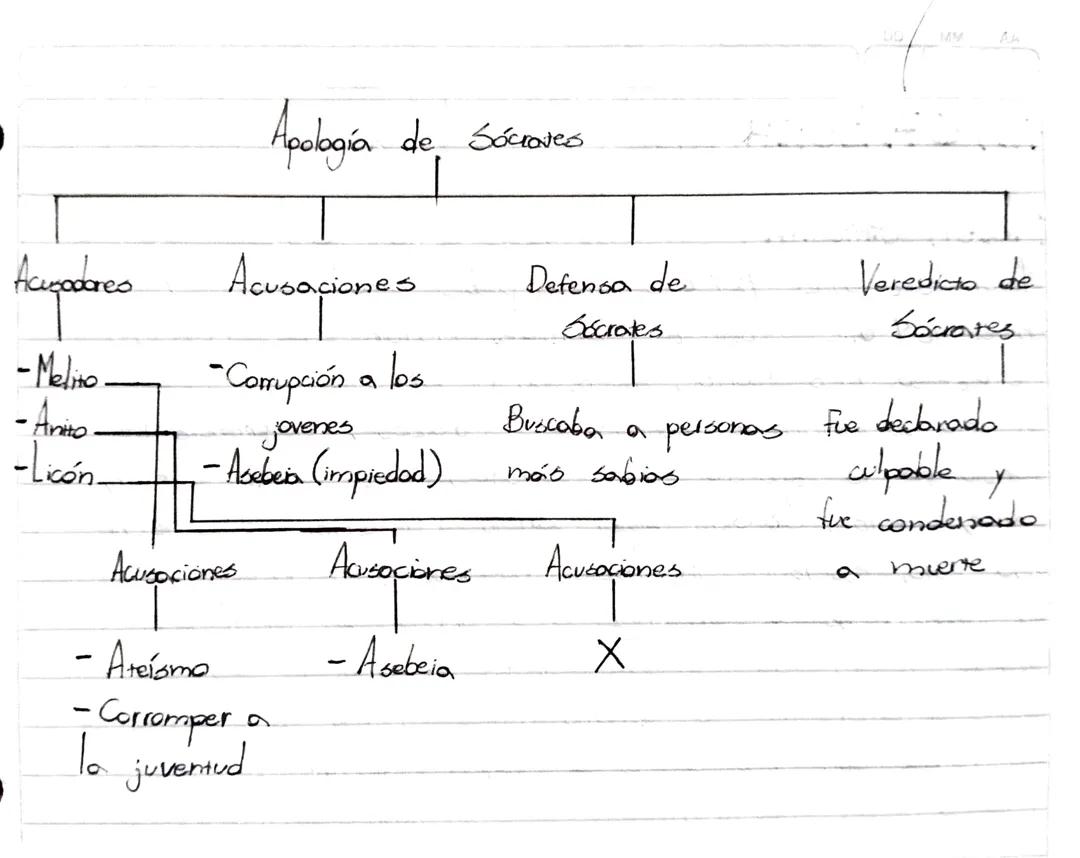 DD MM AA
Apología de Sócrates
Acusadores Acusaciones Defensa de Veredicto de
Sócrates Sócrates
- Melito - Corrupción a los
- Anito jovenes Buscaba a personas fue declarado
- Licón - Asebeia (impiedad) más sabias culpable y
fue condenado
Acusaciones Acusaciones Acusaciones a muerte
- Ateísmo - Asebeia X
- Corromper a
la juventud